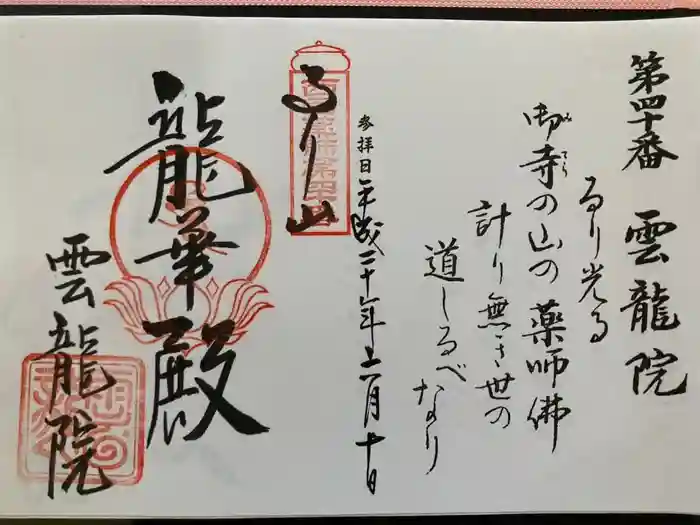 第四十番 雲龍院
るり光る
御寺の山の薬師佛
計り無き世の
道しるべなり
参拝日 平成二十六年十一月十日
るり山
龍華殿
雲龍院